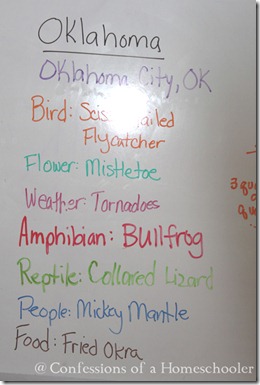 Oklahoma
Oklahoma City, OK
Bird:
Flycatcher
Flower: Mistletoe
Weather: Tornadoes
Amphibian: Bullfrog
Reptile: Collared Lizard
People: Mickey Mantle
Food: Fried Okra
@ Confessions of a Homeschooler